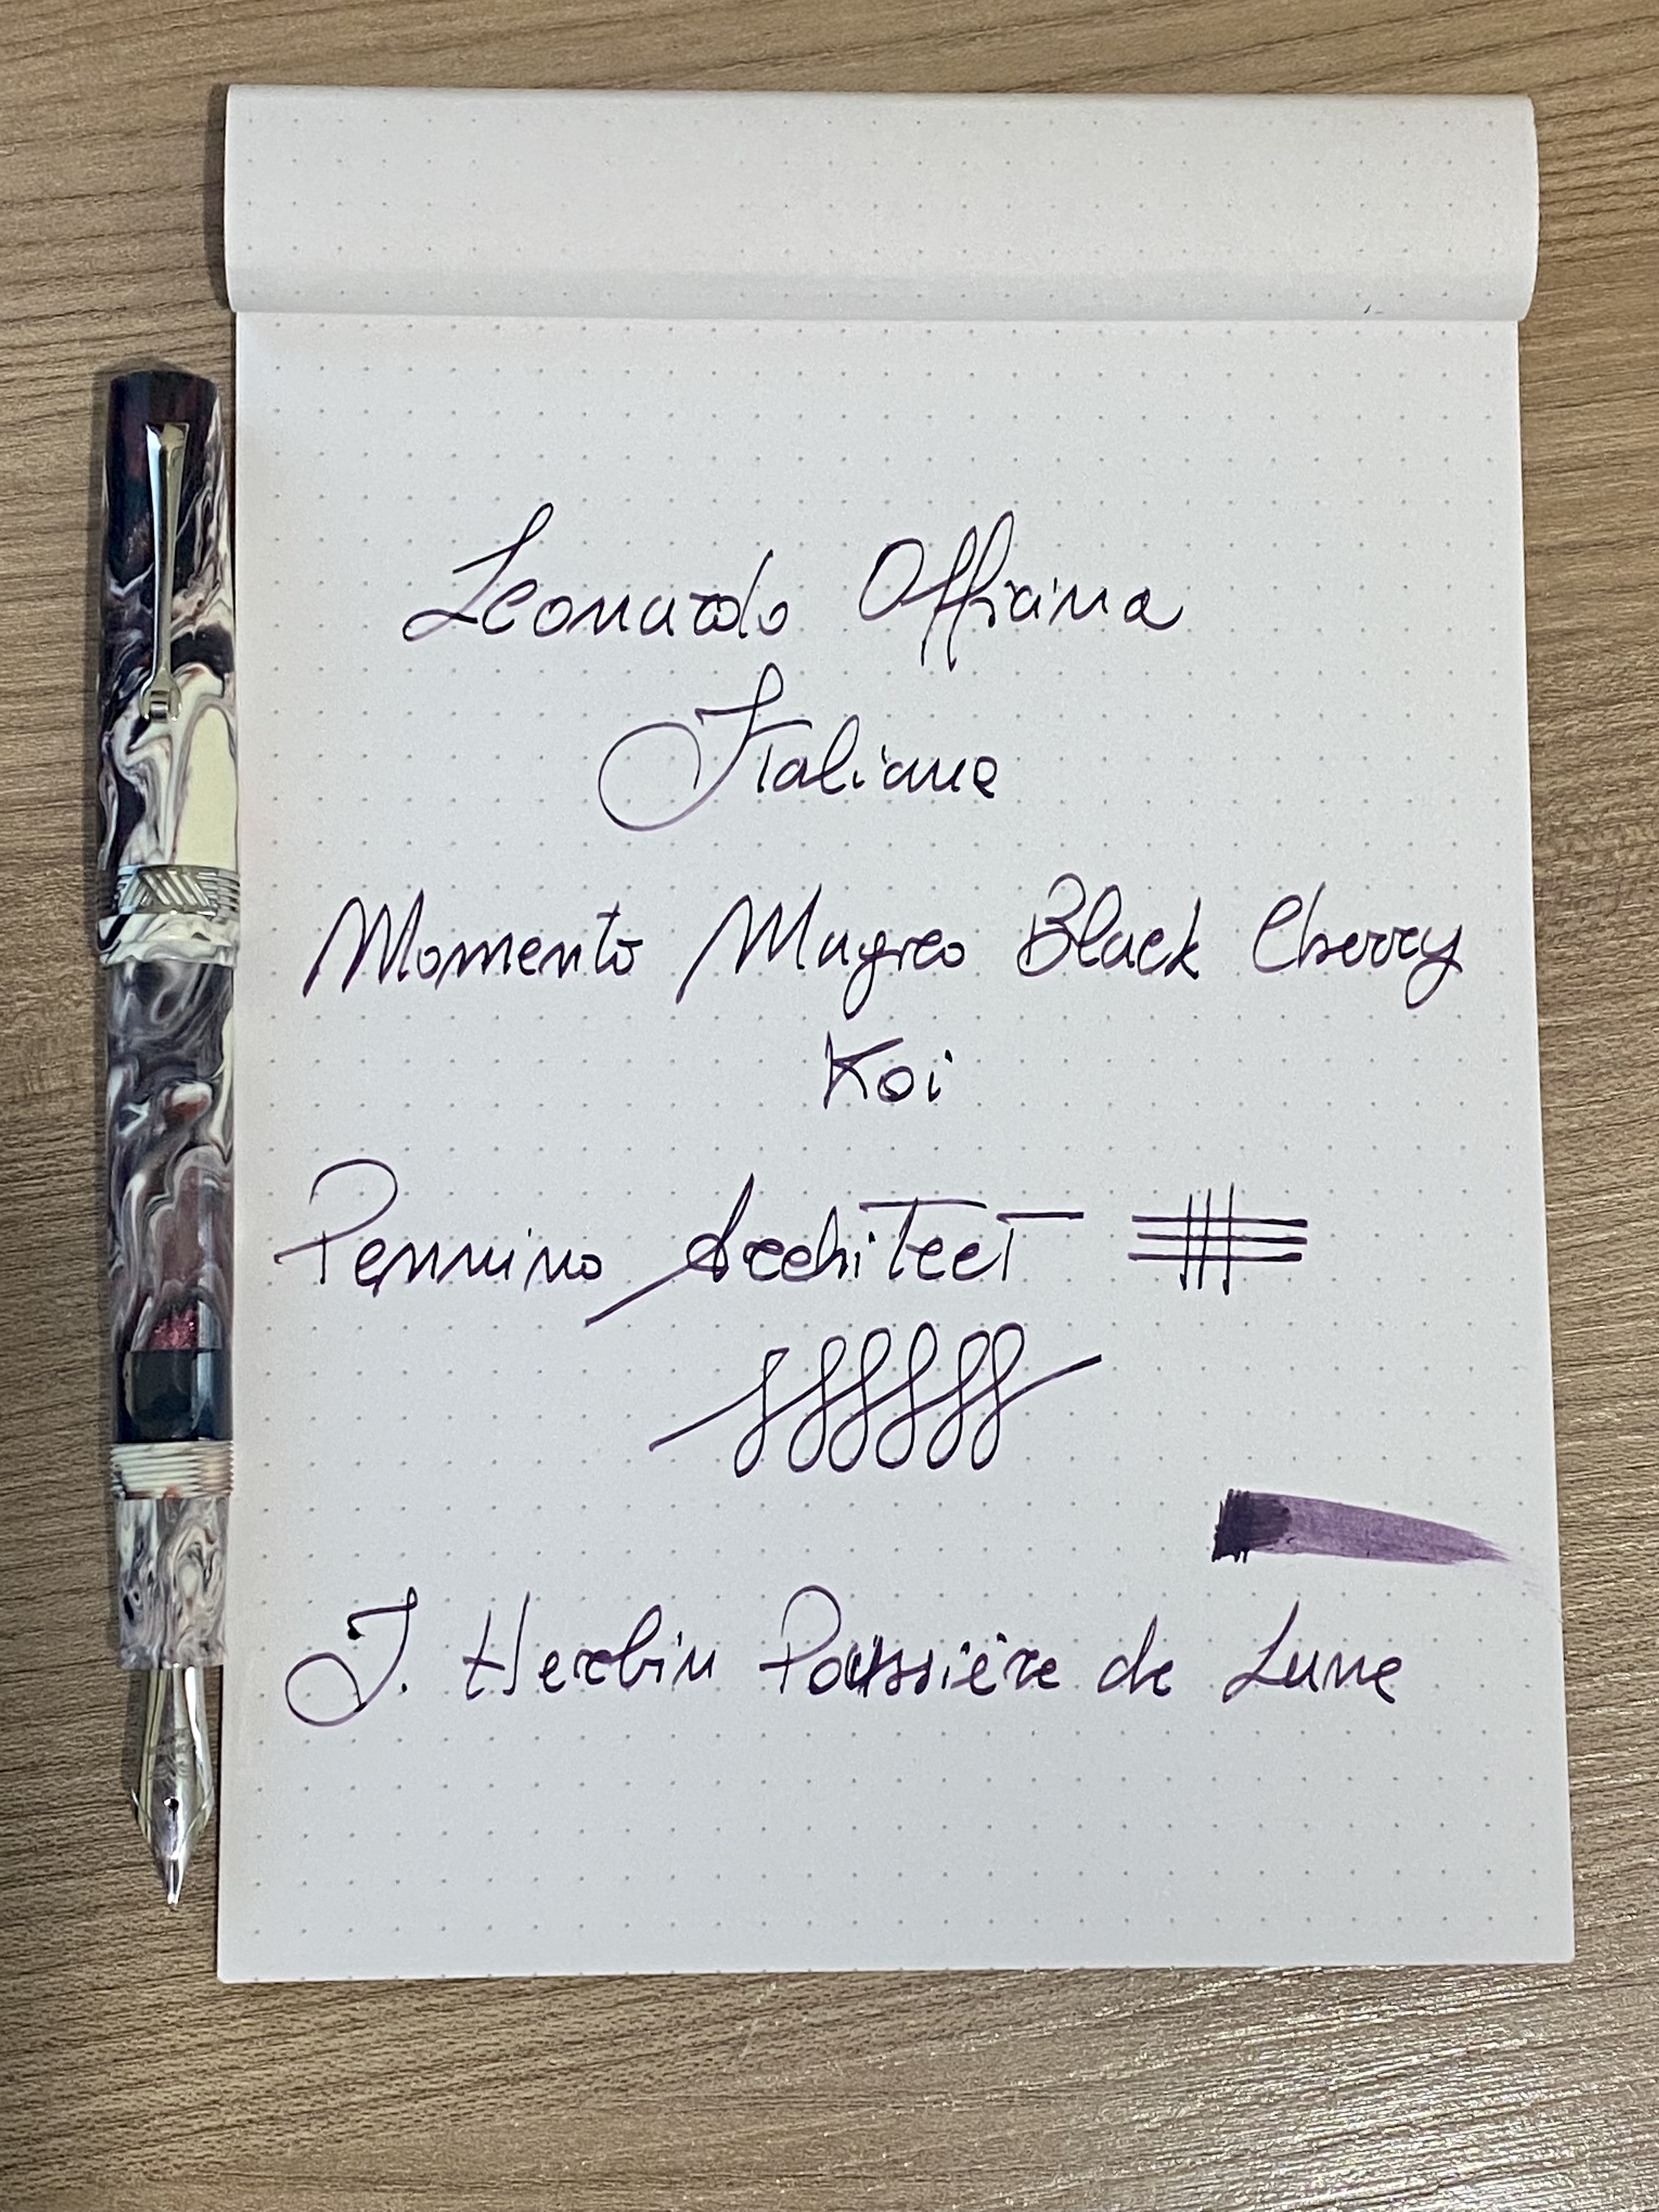 Leonardo Officina
Italiana
Momento Magico Black Cherry
Koi
Pennino Architect
J. Herbin Poussière de Lune